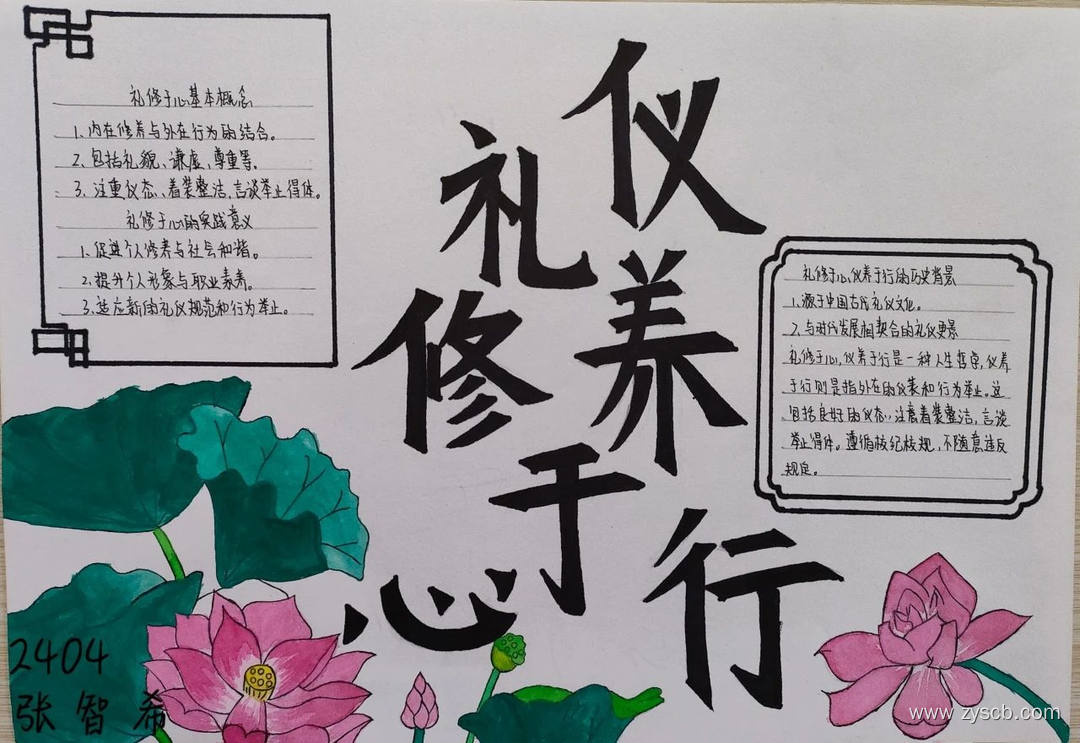 礼修于心
仪养于行
礼修于心基本概念
1、内在修养与外在行为的结合。
2、包括礼貌、谦虚、尊重等。
3、注重仪态、着装整洁,言谈举止得体。
礼修于心的实践意义
1、促进个人修养与社会和谐。
2、提升个人形象与职业素养。
3、适应新的礼仪规范和行为举止。
礼修于心,仪养于行的历史背景
1、源于中国古代礼仪文化。
2、与时代发展相契合的礼仪要素
礼修于心,仪养于行是一种人生哲学,仪养
于行则是指外在的仪表和行为举止。这
包括良好的仪态,注意着装整洁,言谈
举止得体。遵循校纪校规,不随意违反
规定。
2404
张智希
www.zyscb.com